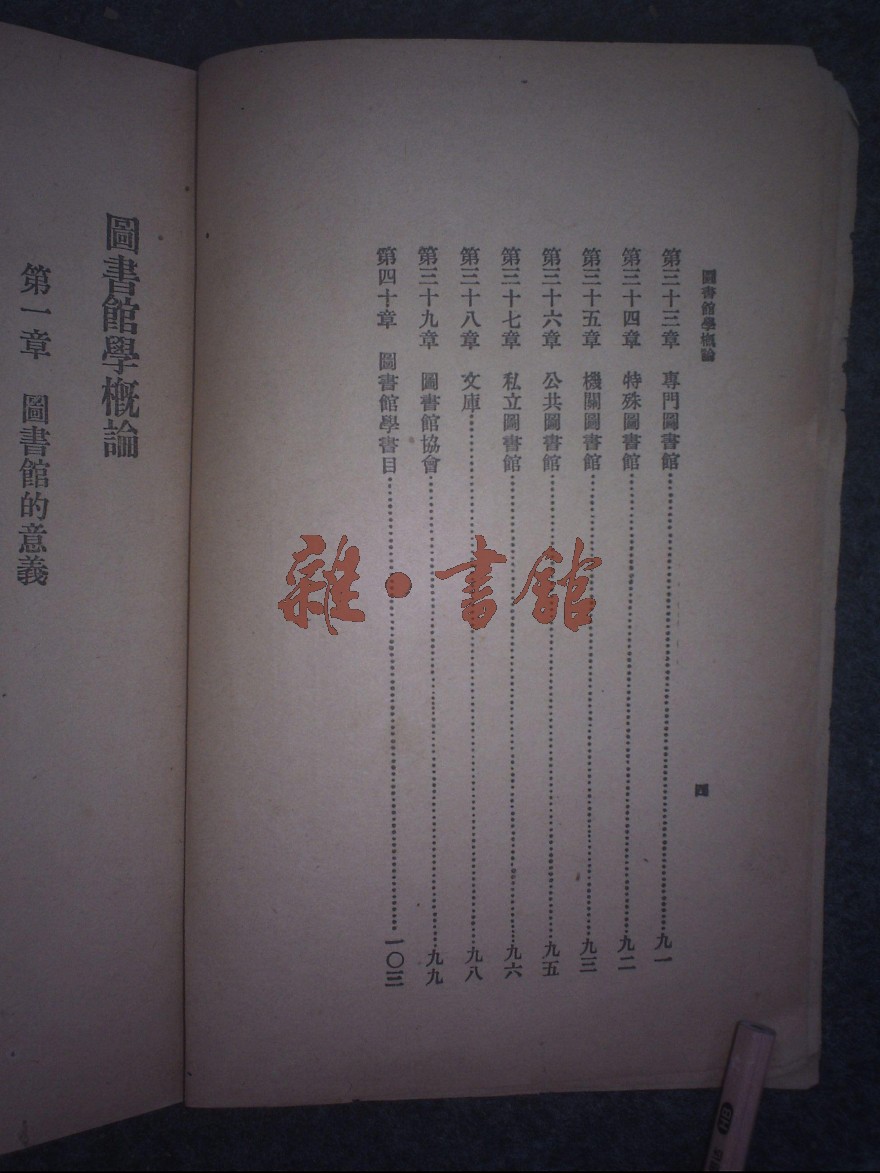 圖書館學概論
四
第三十三章 專門圖書館…………九一
第三十四章 特殊圖書館…………九二
第三十五章 機關圖書館…………九三
第三十六章 公共圖書館…………九五
第三十七章 私立圖書館…………九六
第三十八章 文庫…………九八
第三十九章 圖書館協會…………九九
第四十章 圖書館學書目…………一〇三
圖書館學概論
第一章 圖書館的意義
雜·書館